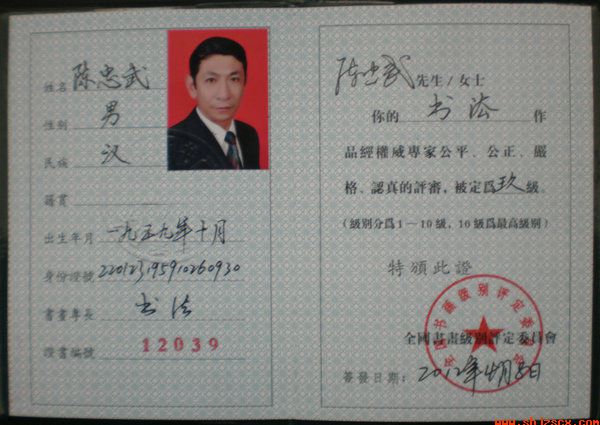 姓名 陈忠武
性别 男
民族 汉
籍貫
出生年月 一九五九年十月
身份證號
書畫專長 书法
證書編號 12039
陈忠武 先生/女士
你的 书法 作
品經權威專家公平、公正、嚴
格、認真的評審，被定爲玖級。
（級别分爲1—10級，10級爲最高級别）
特頒此證
全國書畫級别評定委員會
簽發日期：2012年4月8日
全国书画级别评定委员会
www.shjzscx.com